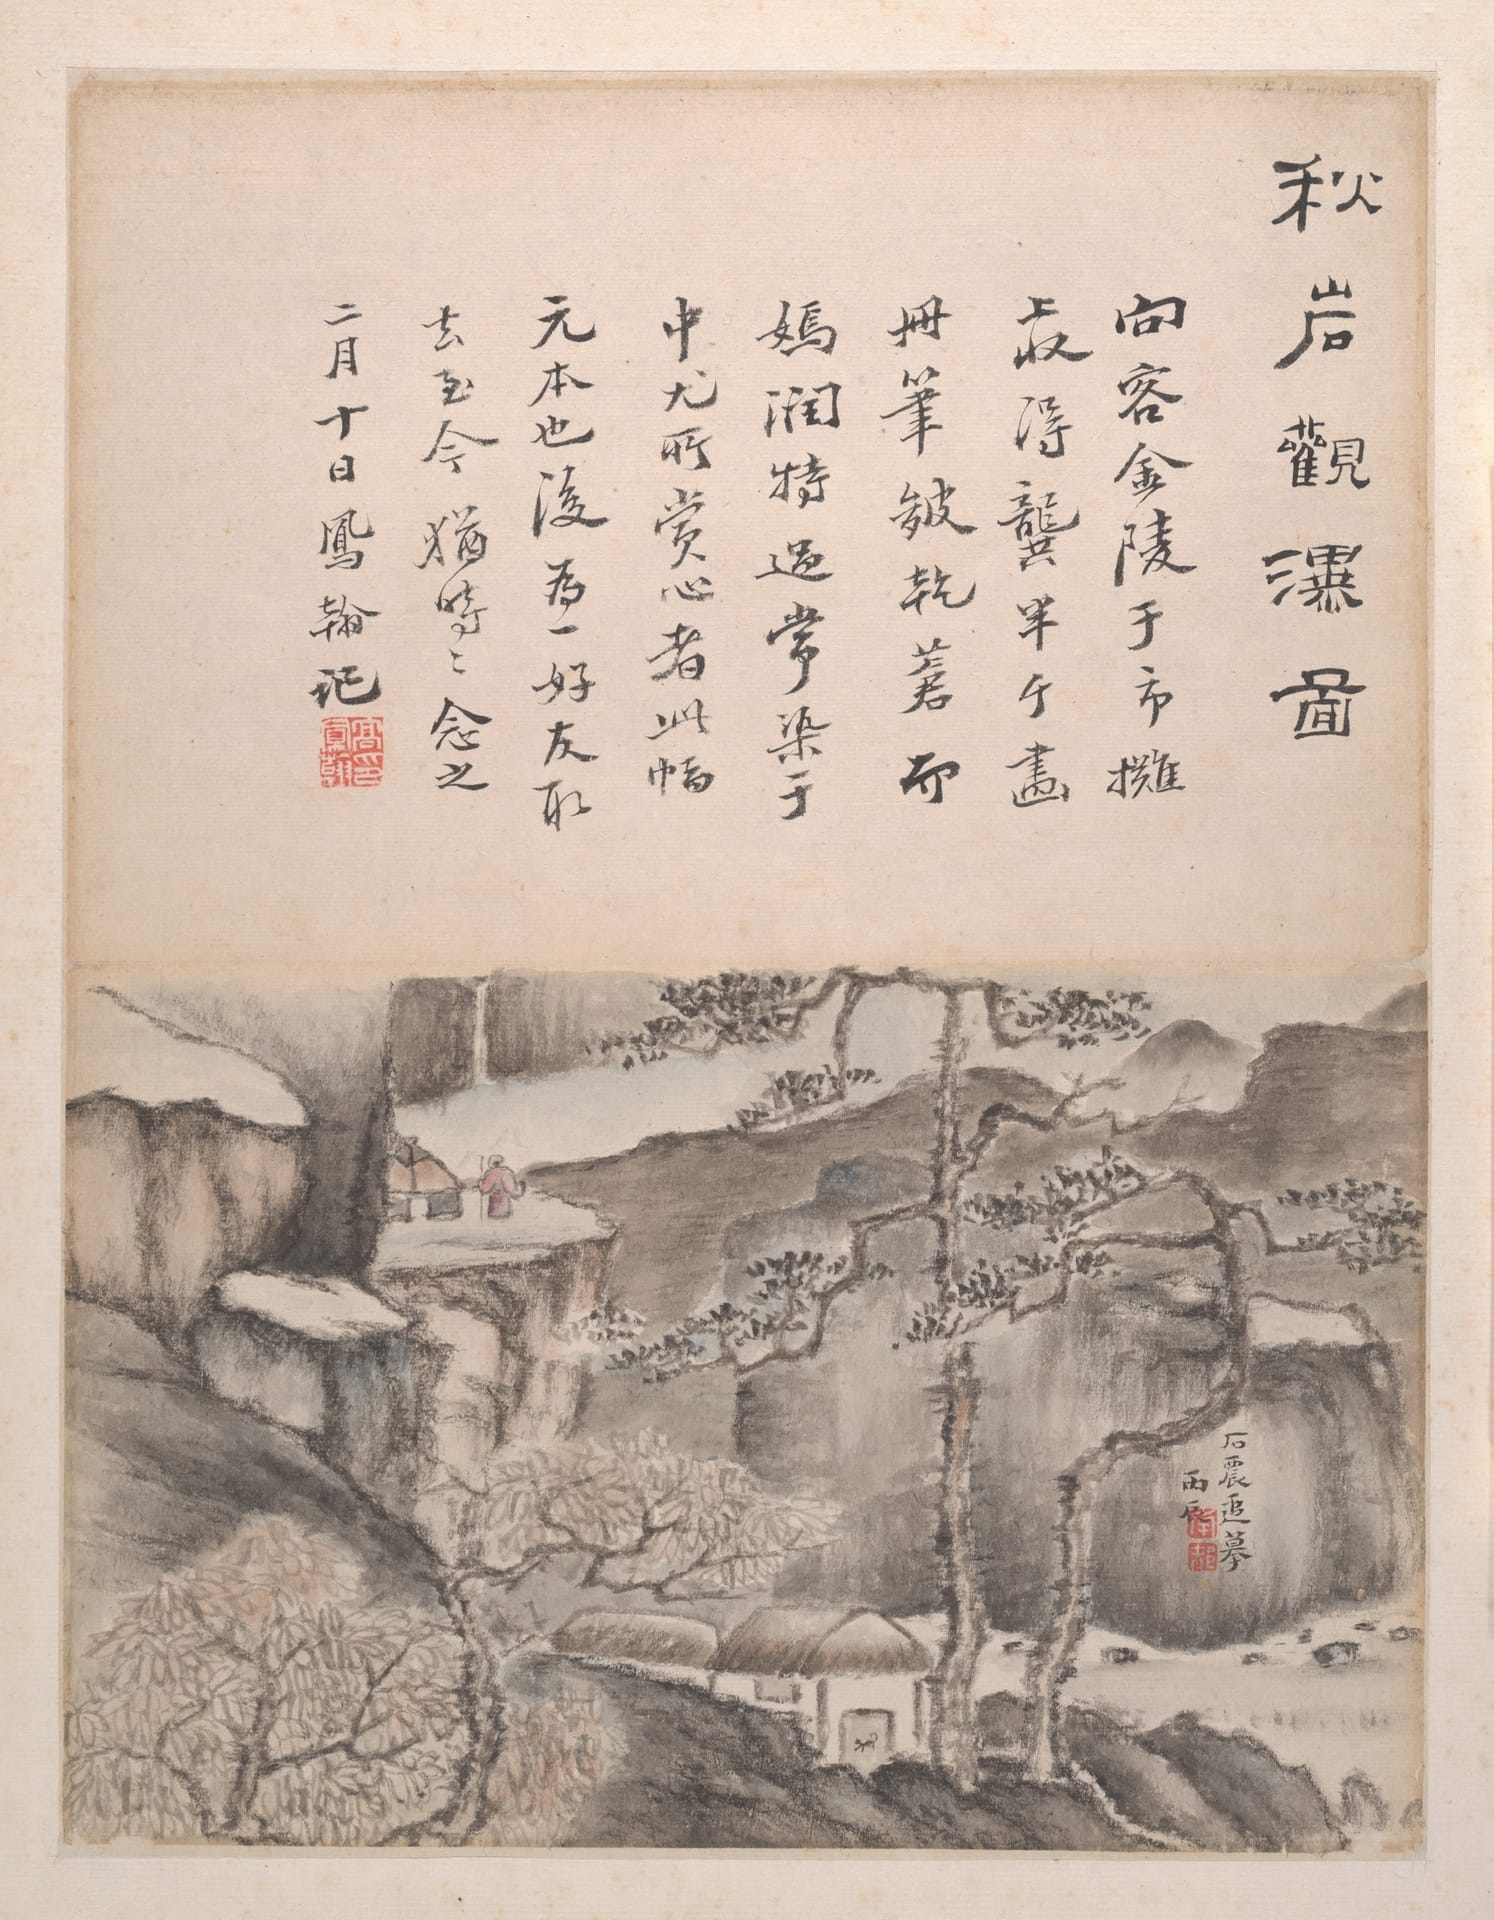 秋岩觀瀑圖
向客金陵于市攤
上收得龔半千畫
冊筆皴乾蒼而
嫣潤特過常染于
中尤所賞心者此幅
元本也後為一好友取
去至今猶時〻念之
二月十日鳳翰記
石震追摹
丙辰